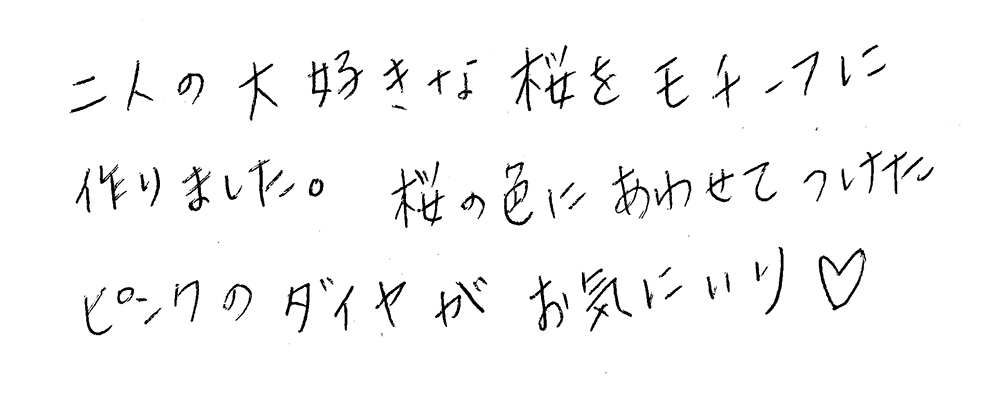 二人の大好きな桜をモチーフに
作りました。 桜の色にあわせてつけた
ピンクのダイヤがお気にいり♡